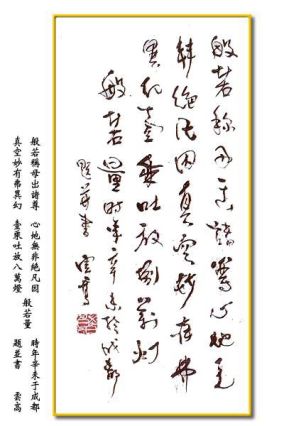 般若稱母出諸尊心地无
非絕凡因真空妙有弗
異幻壹乘吐放八萬灯
般若量 時年辛未於成都
題並書 雲高
般若稱母出諸尊 心地無非絕凡因 般若量 時年辛未于成都
真空妙有弗異幻 壹乘吐放八萬燈 題並書 雲高